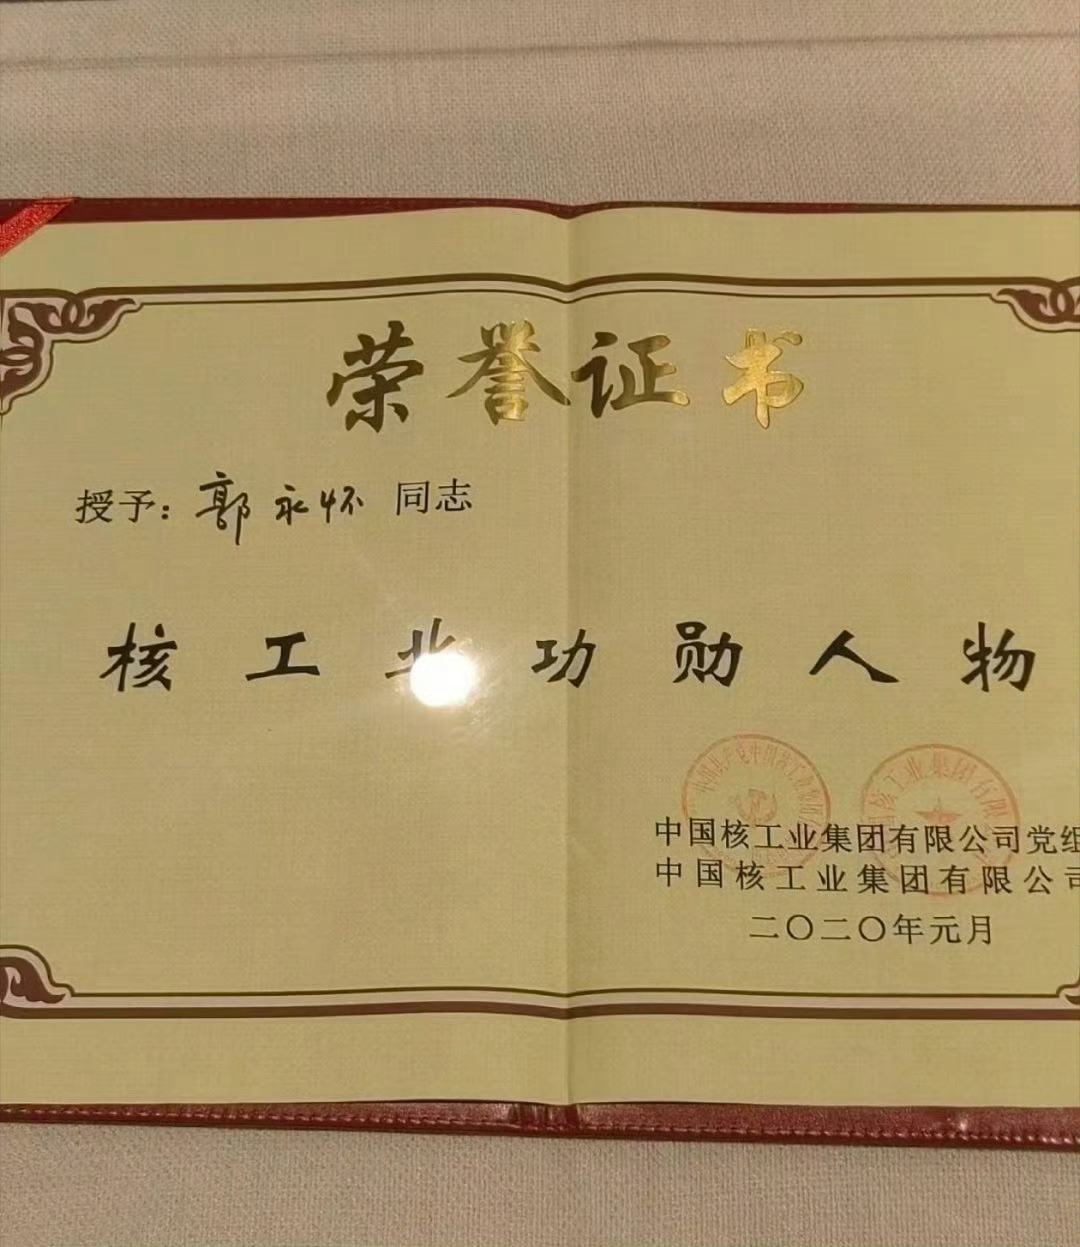 荣誉证书
授予：郭永怀 同志
核工业功勋人物
中国核工业集团有限公司党组
中国核工业集团有限公司
二〇二〇年元月